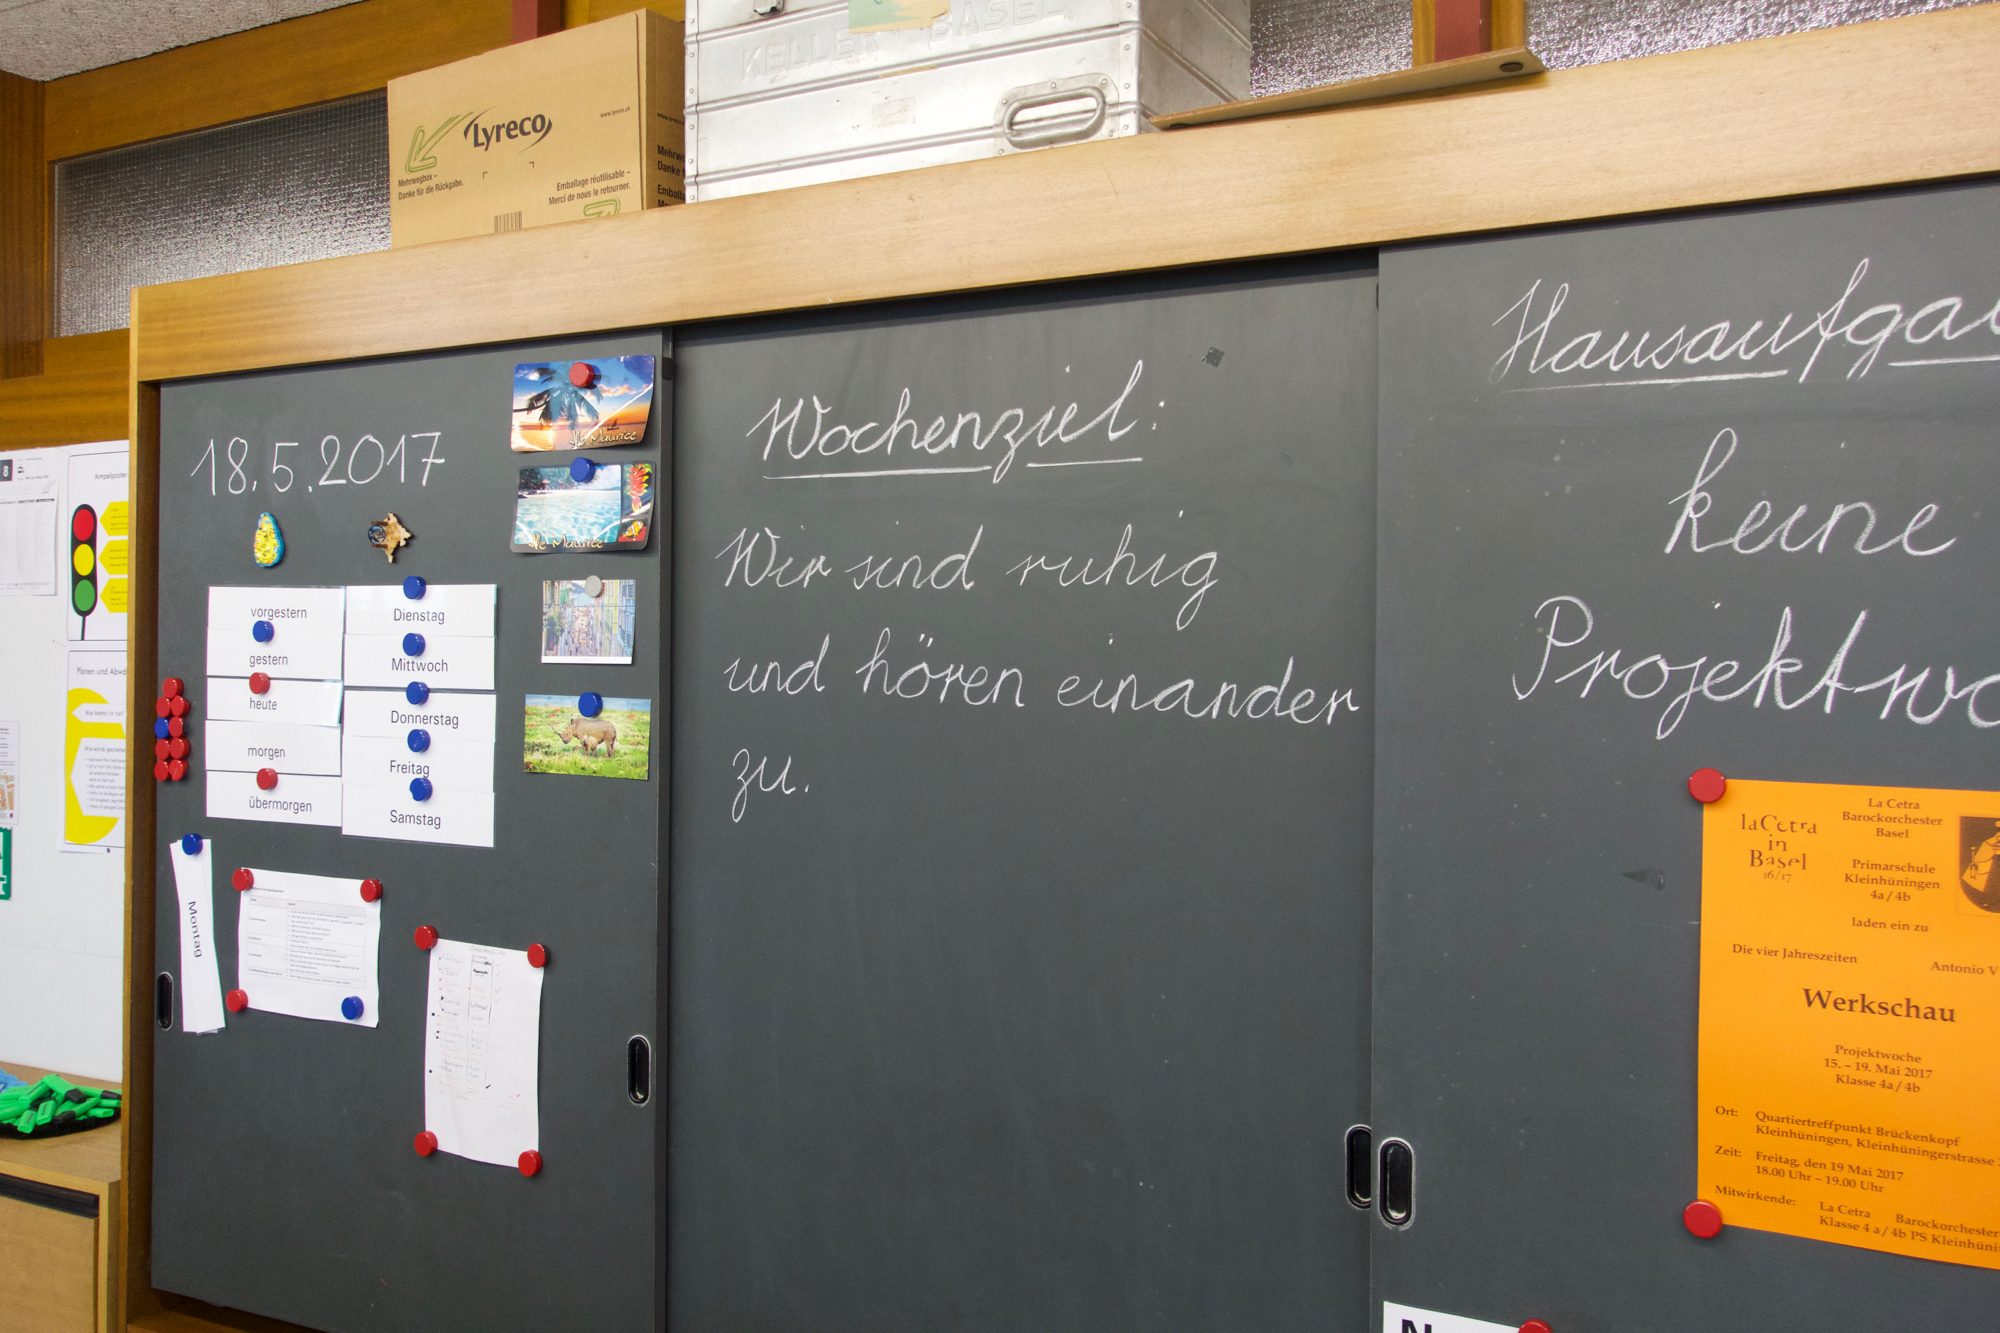 KELLER BASEL
Lyreco
www.lyreco.ch
Mehrwegbox –
Danke für die Rückgabe.
Emballage réutilisable –
Merci de nous le retourner.
18.5.2017
Ile Maurice
Ile Maurice
vorgestern
gestern
heute
morgen
übermorgen
Dienstag
Mittwoch
Donnerstag
Freitag
Samstag
Montag
Ampelposter
Planen und Abwä
Wochenziel:
Wir sind ruhig
und hören einander
zu.
Hausaufga
keine
Projektwo
laCetra
in
Basel
16/17
La Cetra
Barockorchester
Basel
Primarschule
Kleinhüningen
4a / 4b
laden ein zu
Die vier Jahreszeiten
Antonio V
Werkschau
Projektwoche
15. – 19. Mai 2017
Klasse 4a / 4b
Ort: Quartiertreffpunkt Brückenkopf
Kleinhüningen, Kleinhüningerstrasse
Zeit: Freitag, den 19 Mai 2017
18.00 Uhr – 19.00 Uhr
Mitwirkende: La Cetra Barockorchester
Klasse 4 a / 4b PS Kleinhüni